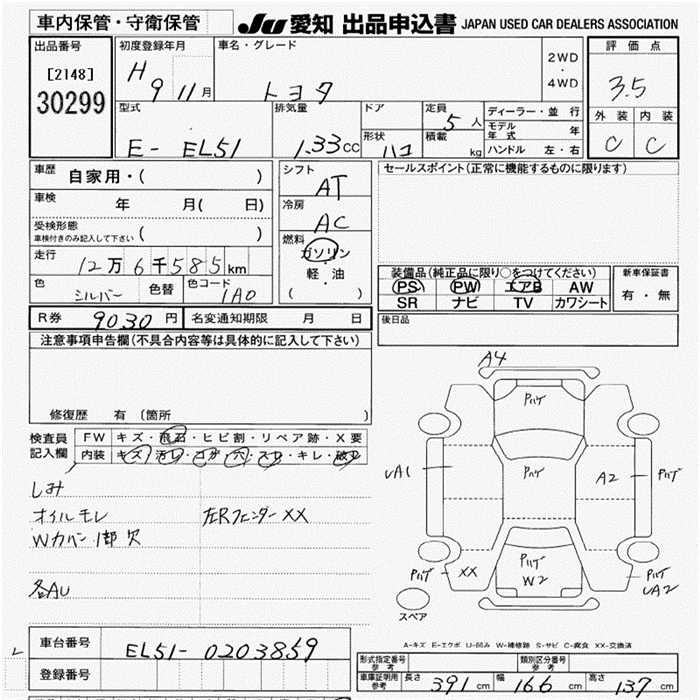 車内保管・守衛保管
JU 愛知 出品申込書 JAPAN USED CAR DEALERS ASSOCIATION
出品番号
[2148]
30299
初度登録年月
H 9 11月
車名・グレード
トヨタ
2WD
・
4WD
評価点
3.5
外装 内装
C C
型式
E- EL51
排気量
1.33cc
ドア
形状
ハコ
定員
5人
積載
kg
ディーラー・並行
モデル年式 年
ハンドル 左・右
車歴 自家用・( )
車検 年 月( 日)
受検形態
車検付きのみ記入して下さい ( )
走行 12万6千585km
色 シルバー 色替 色コード 1A0
シフト
AT
冷房
AC
燃料
ガソリン
・
軽・油
( )
セールスポイント(正常に機能するものに限ります)
装備品(純正品に限り○をつけてください)
PS PW エアB AW
SR ナビ TV カワシート
新車保証書
有・無
後日品
R券 9030円 名変通知期限 月 日
注意事項申告欄(不具合内容等は具体的に記入して下さい)
修復歴 有 〔箇所 〕
検査員記入欄
FW キズ・飛石・ヒビ割・リペア跡・X要
内装 キズ・汚れ・コゲ・穴・スレ・キレ・破レ
しみ
オイルモレ 左Rフェンダー××
Wカバー1部欠
各AU
A4
Pハゲ
UA1 Pハゲ A2 Pハゲ
Pハゲ ×× Pハゲ W2 Pハゲ UA2
スペア
A-キズ E-エクボ U-凹み W-補修跡 S-サビ C-腐食 XX-交換済
車台番号 EL51-0203859
登録番号
形式指定番号 参考 類別区分番号 参考
車庫証明用 参考 長さ 391cm 幅 166cm 高さ 137cm